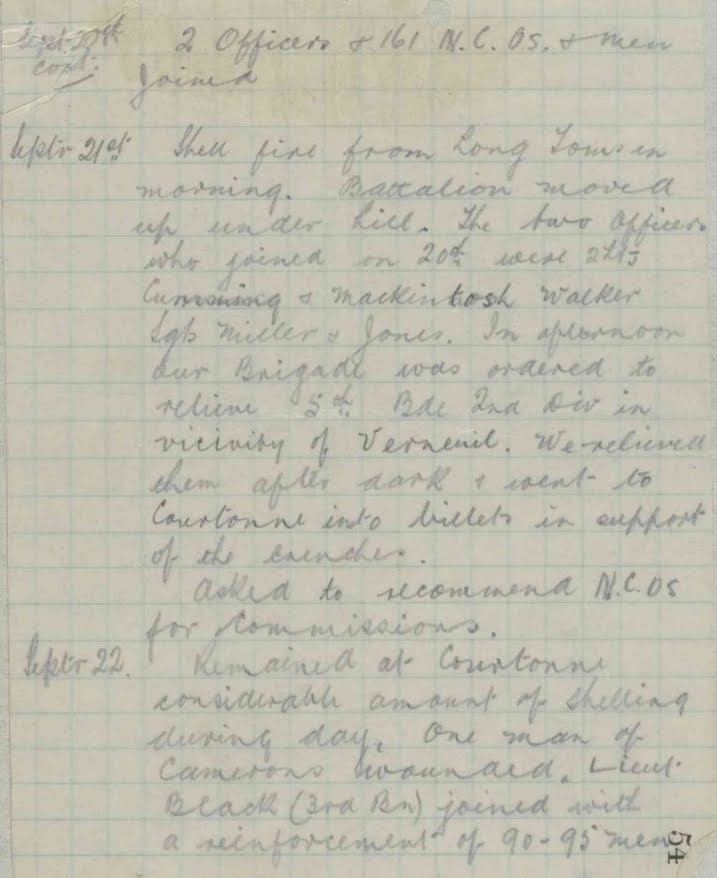 Sept 20th 2 Officers & 161 N.C.Os. & men
cont: joined
Septr 21st Shell fire from Long Toms in
morning. Battalion moved
up under hill. The two Officers
who joined on 20th were 2Lts
Cumming & Mackintosh Walker
Sgts Miller & Jones. In afternoon
our Brigade was ordered to
relieve 5th Bde 2nd Div in
vicinity of Verneuil. We relieved
them after dark & went to
Courtonne into billets in support
of the trenches.
Asked to recommend N.C.Os
for Commissions.
Septr 22. Remained at Courtonne
considerable amount of shelling
during day. One man of
Camerons wounded. Lieut
Black (3rd Bn) joined with
a reinforcement of 90-95 men
54